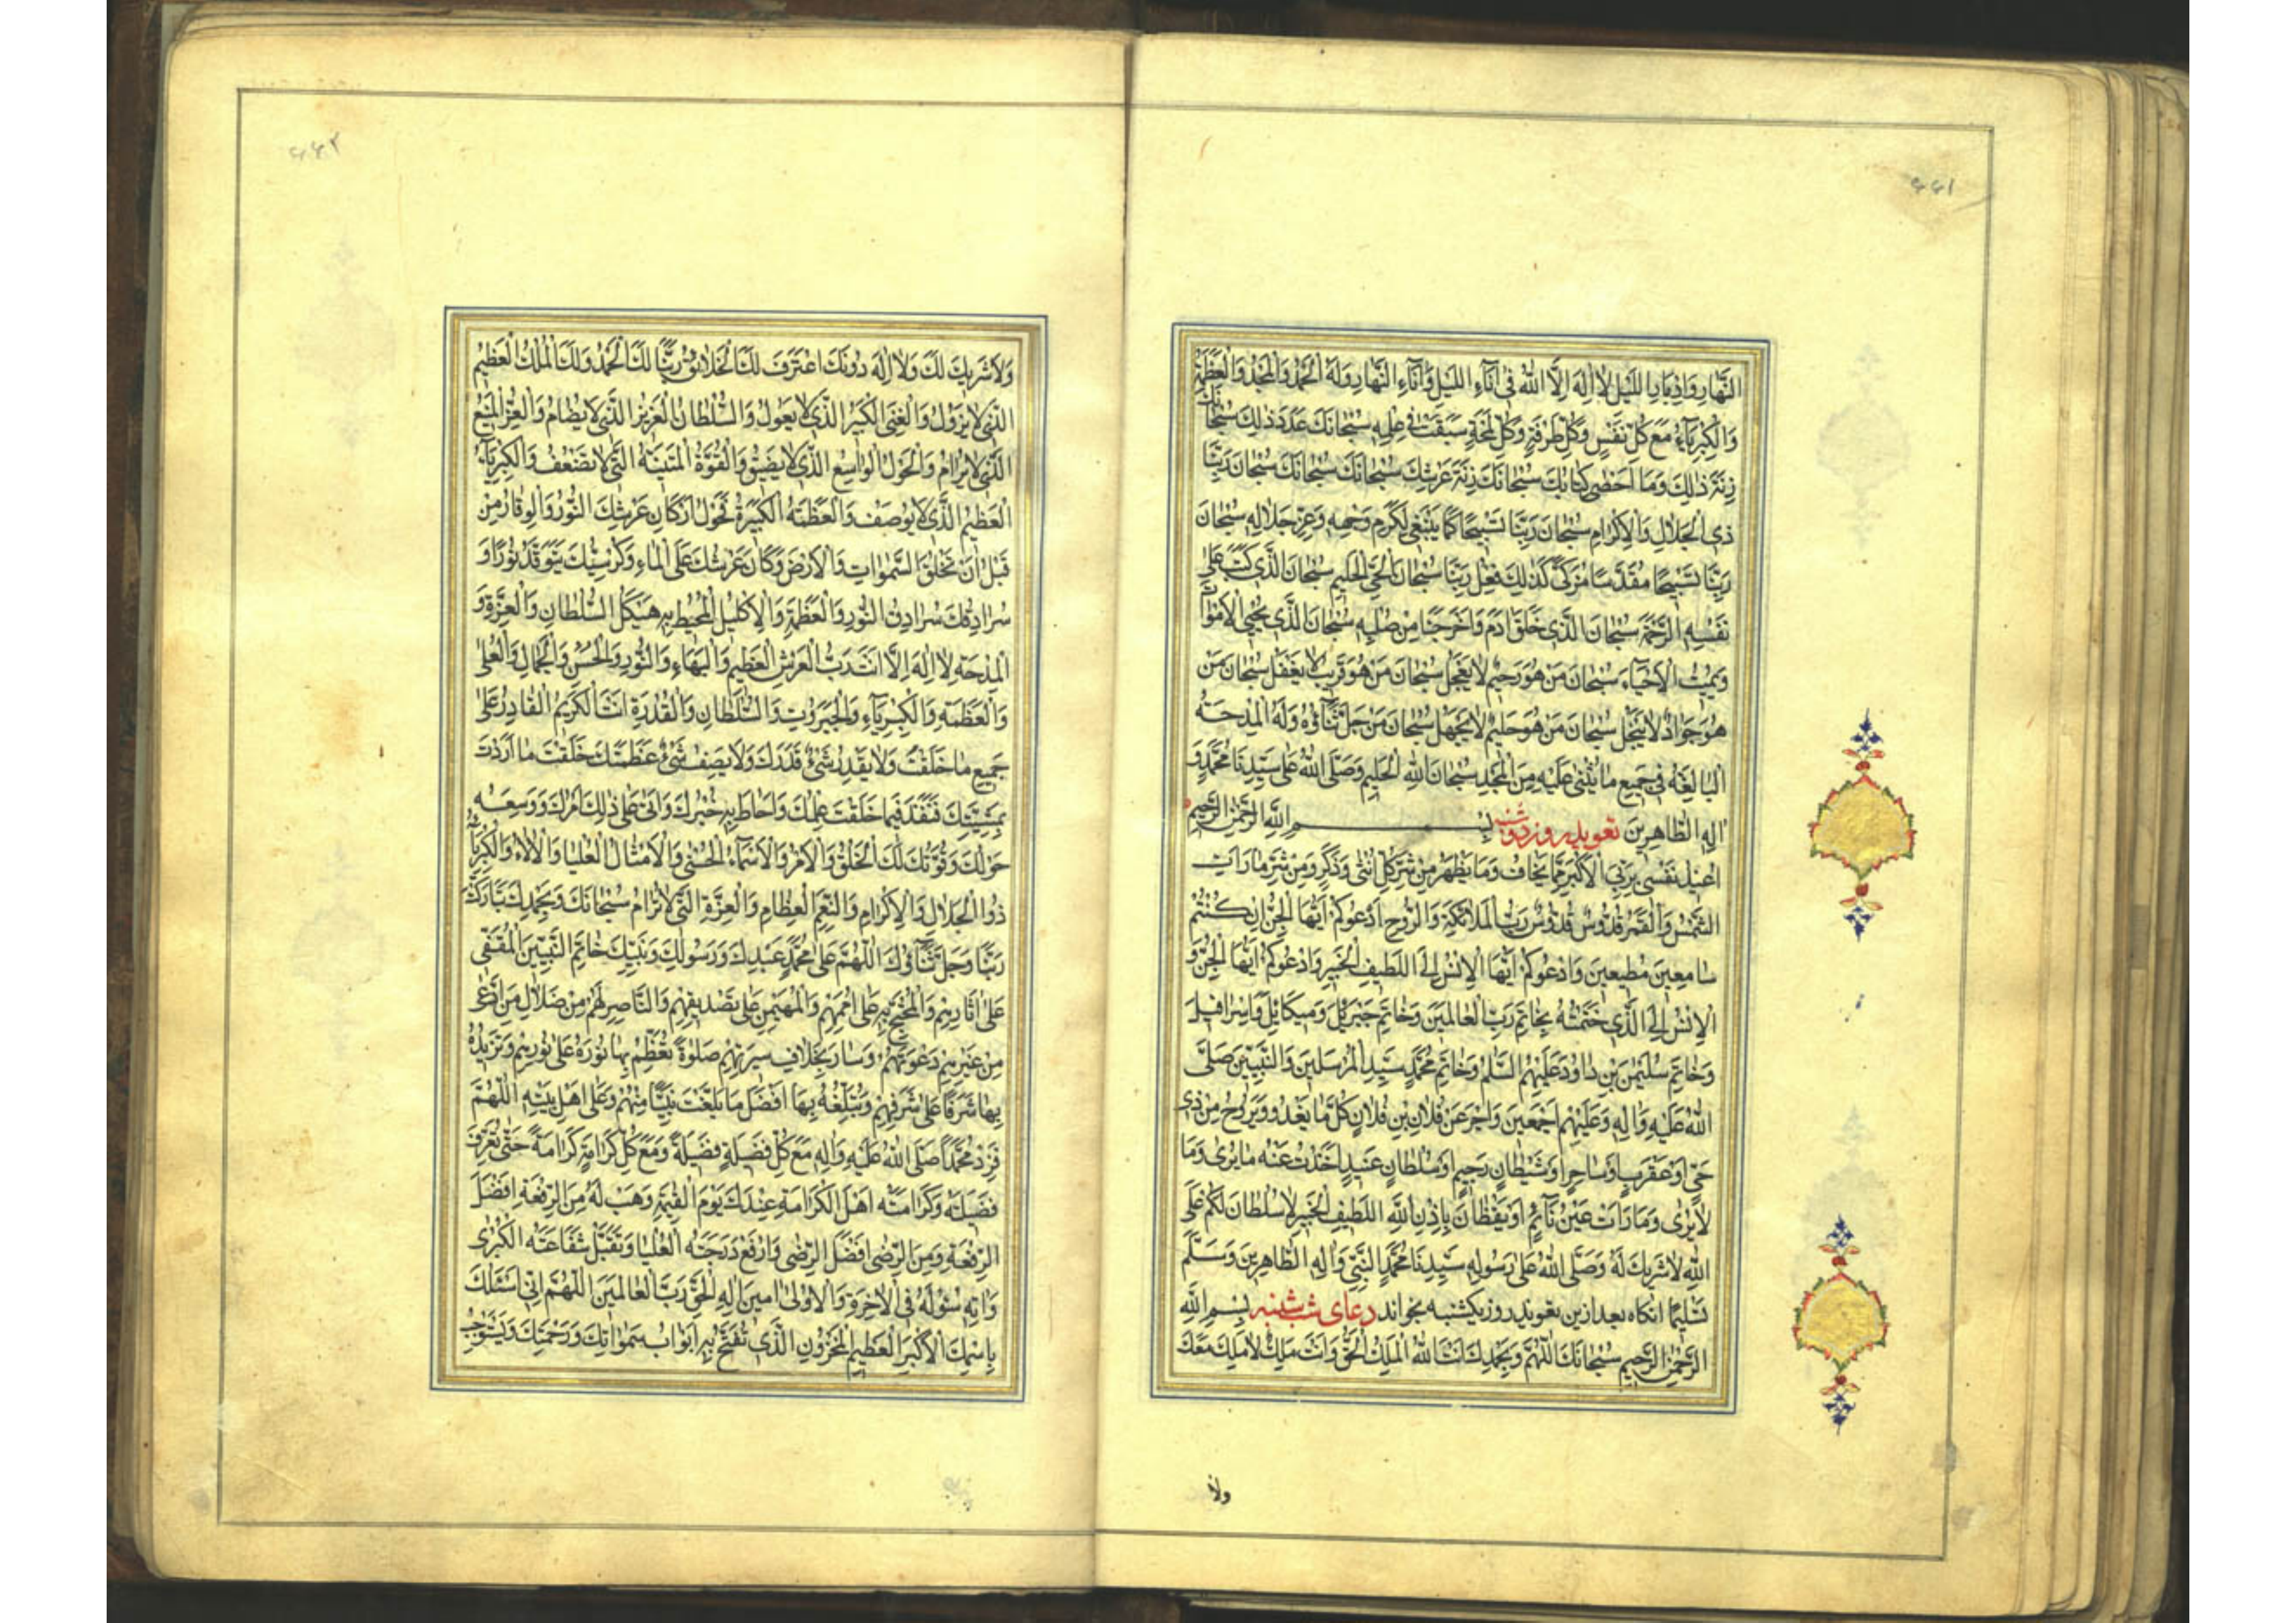 ۶۶۱
النَّهارِ وَاِدْبارِ اللَّيْلِ لا اِلهَ اِلَّا اللهُ فى اناءِ اللَّيْلِ وَاناءِ النَّهارِ وَلَهُ الْحَمْدُ وَالْمَجْدُ وَالْعَظَمَةُ
وَالْكِبْرِياءُ مَعَ كُلِّ نَفَسٍ وَكُلِّ طَرْفَةٍ وَكُلِّ لَمْحَةٍ سَبَقَتْ فى عِلْمِهِ سُبْحانَكَ عَدَدَ ذلِكَ سُبْحانَكَ
زِنَةَ ذلِكَ وَما اَحْصى كِتابُكَ سُبْحانَكَ زِنَةَ عَرْشِكَ سُبْحانَكَ سُبْحانَكَ سُبْحانَ رَبِّنا
ذِى الْجَلالِ وَالْاِكْرامِ سُبْحانَ رَبِّنا تَسْبيحًا كَما يَنْبَغى لِكَرَمِ وَجْهِهِ وَعِزِّ جَلالِهِ سُبْحانَ
رَبِّنا تَسْبيحًا مُقَدَّسًا مُزَكًّى كَذلِكَ فِعْلُ رَبِّنا سُبْحانَ الْحَىِّ الْحَليمِ سُبْحانَ الَّذى كَتَبَ عَلى
نَفْسِهِ الرَّحْمَةَ سُبْحانَ الَّذى خَلَقَ ادَمَ وَاَخْرَجَنا مِنْ صُلْبِهِ سُبْحانَ الَّذى يُحْيِى الْاَمْواتَ
وَيُميتُ الْاَحْياءَ سُبْحانَ مَنْ هُوَ رَحيمٌ لا يَعْجَلُ سُبْحانَ مَنْ هُوَ قَريبٌ لا يَغْفُلُ سُبْحانَ مَنْ
هُوَ جَوادٌ لا يَبْخَلُ سُبْحانَ مَنْ هُوَ حَليمٌ لا يَجْهَلُ سُبْحانَ مَنْ جَلَّ ثَناؤُهُ وَلَهُ الْمِدْحَةُ
الْبالِغَةُ فى جَميعِ ما يُثْنى عَلَيْهِ مِنَ الْمَجْدِ سُبْحانَ اللهِ الْحَليمِ وَصَلَّى اللهُ عَلى سَيِّدِنا مُحَمَّدٍ وَ
الِهِ الطّاهِرينَ تعويذ روز دوشنبه بِسْمِ اللهِ الرَّحْمنِ الرَّحيمِ
اُعيذُ نَفْسى بِرَبِّىَ الْاَكْبَرِ مِمّا يَخافُ وَما يَظْهَرُ مِنْ شَرِّ كُلِّ اُنْثى وَذَكَرٍ وَمِنْ شَرِّ ما رَاَتِ
الشَّمْسُ وَالْقَمَرُ قُدُّوسٌ قُدُّوسٌ رَبُّ الْمَلائِكَةِ وَالرُّوحِ اَدْعُوكُمْ اَيُّهَا الْجِنُّ اِنْ كُنْتُمْ
سامِعينَ مُطيعينَ وَاَدْعُوكُمْ اَيُّهَا الْاِنْسُ اِلَى اللَّطيفِ الْخَبيرِ وَاَدْعُوكُمْ اَيُّهَا الْجِنُّ وَ
الْاِنْسُ اِلَى الَّذى خَتَمْتُهُ بِخاتَمِ رَبِّ الْعالَمينَ وَخاتَمِ جَبْرَئيلَ وَميكائيلَ وَاِسْرافيلَ
وَخاتَمِ سُلَيْمنَ بْنِ داوُدَ عَلَيْهِمُ السَّلمُ وَخاتَمِ مُحَمَّدٍ سَيِّدِ الْمُرْسَلينَ وَالنَّبِيّينَ صَلَّى
اللهُ عَلَيْهِ وَالِهِ وَعَلَيْهِمْ اَجْمَعينَ وَاَخِّرْ عَنْ فُلانِ بْنِ فُلانٍ كُلَّما يَغْدُو وَيَرُوحُ مِنْ ذى
حَىٍّ اَوْ عَقْرَبٍ اَوْ ساحِرٍ اَوْ شَيْطانٍ رَجيمٍ اَوْ سُلْطانٍ عَنيدٍ اَخَذْتُ عَنْهُ ما يُرى وَما
لا يُرى وَما رَاَتْ عَيْنُ نائِمٍ اَوْ يَقْظانَ بِاِذْنِ اللهِ اللَّطيفِ الْخَبيرِ لا سُلْطانَ لَكُمْ عَلَى
اللهِ لا شَريكَ لَهُ وَصَلَّى اللهُ عَلى رَسُولِهِ سَيِّدِنا مُحَمَّدٍ النَّبِىِّ وَالِهِ الطّاهِرينَ وَسَلَّمَ
تَسْليمًا انكاه بعد ازين تعويذ روز يكشنبه بخواند دعاى شب شنبه بِسْمِ اللهِ
الرَّحْمنِ الرَّحيمِ سُبْحانَكَ اللّهُمَّ وَبِحَمْدِكَ اَنْتَ اللهُ الْمَلِكُ الْحَقُّ وَاَنْتَ مَلِكٌ لا مَلِكَ مَعَكَ
ولا
۶۶۲
وَلا شَريكَ لَكَ وَلا اِلهَ دُونَكَ اعْتَرَفَ لَكَ الْخَلائِقُ رَبَّنا لَكَ الْحَمْدُ وَلَكَ الْمُلْكُ الْعَظيمُ
الَّذى لا يَزُولُ وَالْغِنَى الْكَبيرُ الَّذى لا يَعُولُ وَالسُّلْطانُ الْعَزيزُ الَّذى لا يُضامُ وَالْعِزُّ الْمَنيعُ
الَّذى لا يُرامُ وَالْحَوْلُ الْواسِعُ الَّذى لا يَضيقُ وَالْقُوَّةُ الْمَتينَةُ الَّتى لا تَضْعُفُ وَالْكِبْرِياءُ
الْعَظيمُ الَّذى لا يُوصَفُ وَالْعَظَمَةُ الْكَبيرَةُ فَحَوْلَ اَرْكانِ عَرْشِكَ النُّورُ وَالْوَقارُ مِنْ
قَبْلِ اَنْ تَخْلُقَ السَّمواتِ وَالْاَرْضَ وَكانَ عَرْشُكَ عَلَى الْماءِ وَكُرْسِيُّكَ يَتَوَقَّدُ نُورًا وَ
سُرادِقُكَ سُرادِقُ النُّورِ وَالْعَظَمَةِ وَالْاِكْليلُ الْمُحيطُ بِهِ هَيْكَلُ السُّلْطانِ وَالْعِزَّةِ وَ
الْمِدْحَةِ لا اِلهَ اِلَّا اَنْتَ رَبُّ الْعَرْشِ الْعَظيمِ وَالْبَهاءِ وَالنُّورِ وَالْحُسْنِ وَالْجَمالِ وَالْعُلى
وَالْعَظَمَةِ وَالْكِبْرِياءِ وَالْجَبَرُوتِ وَالسُّلْطانِ وَالْقُدْرَةِ اَنْتَ الْكَريمُ الْقادِرُ عَلى
جَميعِ ما خَلَقْتَ وَلا يَقْدِرُ شَىْءٌ قَدْرَكَ وَلا يَصِفُ شَىْءٌ عَظَمَتَكَ خَلَقْتَ ما اَرَدْتَ
بِمَشِيَّتِكَ فَنَفَذَ فيما خَلَقْتَ عِلْمُكَ وَاَحاطَ بِهِ خُبْرُكَ وَاَتى عَلى ذلِكَ اَمْرُكَ وَوَسِعَهُ
حَوْلُكَ وَقُوَّتُكَ لَكَ الْخَلْقُ وَالْاَمْرُ وَالْاَسْماءُ الْحُسْنى وَالْاَمْثالُ الْعُلْيا وَالْالاءُ وَالْكِبْرِياءُ
ذُو الْجَلالِ وَالْاِكْرامِ وَالنِّعَمِ الْعِظامِ وَالْعِزَّةِ الَّتى لا تُرامُ سُبْحانَكَ وَبِحَمْدِكَ تَبارَكْتَ
رَبَّنا وَجَلَّ ثَناؤُكَ اللّهُمَّ عَلى مُحَمَّدٍ عَبْدِكَ وَرَسُولِكَ وَنَبِيِّكَ خاتَمِ النَّبِيّينَ الْمُقَفّى
عَلى اثارِهِمْ وَالْمُحْتَجِّ بِهِ عَلى اُمَمِهِمْ وَالْمُهَيْمِنِ عَلى تَصْديقِهِمْ وَالنّاصِرِ لَهُمْ مِنْ ضَلالِ مَنِ ادَّعى
مِنْ غَيْرِهِمْ دَعْوَتَهُمْ وَسارَ بِخِلافِ سيرَتِهِمْ صَلوةً تُعَظِّمُ بِها نُورَهُ عَلى نُورِهِمْ وَتَزيدُهُ
بِها شَرَفًا عَلى شَرَفِهِمْ وَتُبَلِّغُهُ بِها اَفْضَلَ ما بَلَّغْتَ نَبِيًّا مِنْهُمْ وَعَلى اَهْلِ بَيْتِهِ اللّهُمَّ
فَزِدْ مُحَمَّدًا صَلَّى اللهُ عَلَيْهِ وَالِهِ مَعَ كُلِّ فَضيلَةٍ فَضيلَةً وَمَعَ كُلِّ كَرامَةٍ كَرامَةً حَتّى تُعَرِّفَ
فَضيلَتَهُ وَكَرامَتَهُ اَهْلَ الْكَرامَةِ عِنْدَكَ يَوْمَ الْقِيمَةِ وَهَبْ لَهُ مِنَ الرِّفْعَةِ اَفْضَلَ
الرِّفْعَةِ وَمِنَ الرِّضى اَفْضَلَ الرِّضى وَارْفَعْ دَرَجَتَهُ الْعُلْيا وَتَقَبَّلْ شَفاعَتَهُ الْكُبْرى
وَاتِهِ سُؤْلَهُ فِى الْاخِرَةِ وَالْاُولى امينَ اِلهَ الْحَقِّ رَبَّ الْعالَمينَ اللّهُمَّ اِنّى اَسْئَلُكَ
بِاسْمِكَ الْاَكْبَرِ الْعَظيمِ الْمَخْزُونِ الَّذى تُفَتَّحُ بِهِ اَبْوابُ سَمواتِكَ وَرَحْمَتِكَ وَيُسْتَوْجَبُ